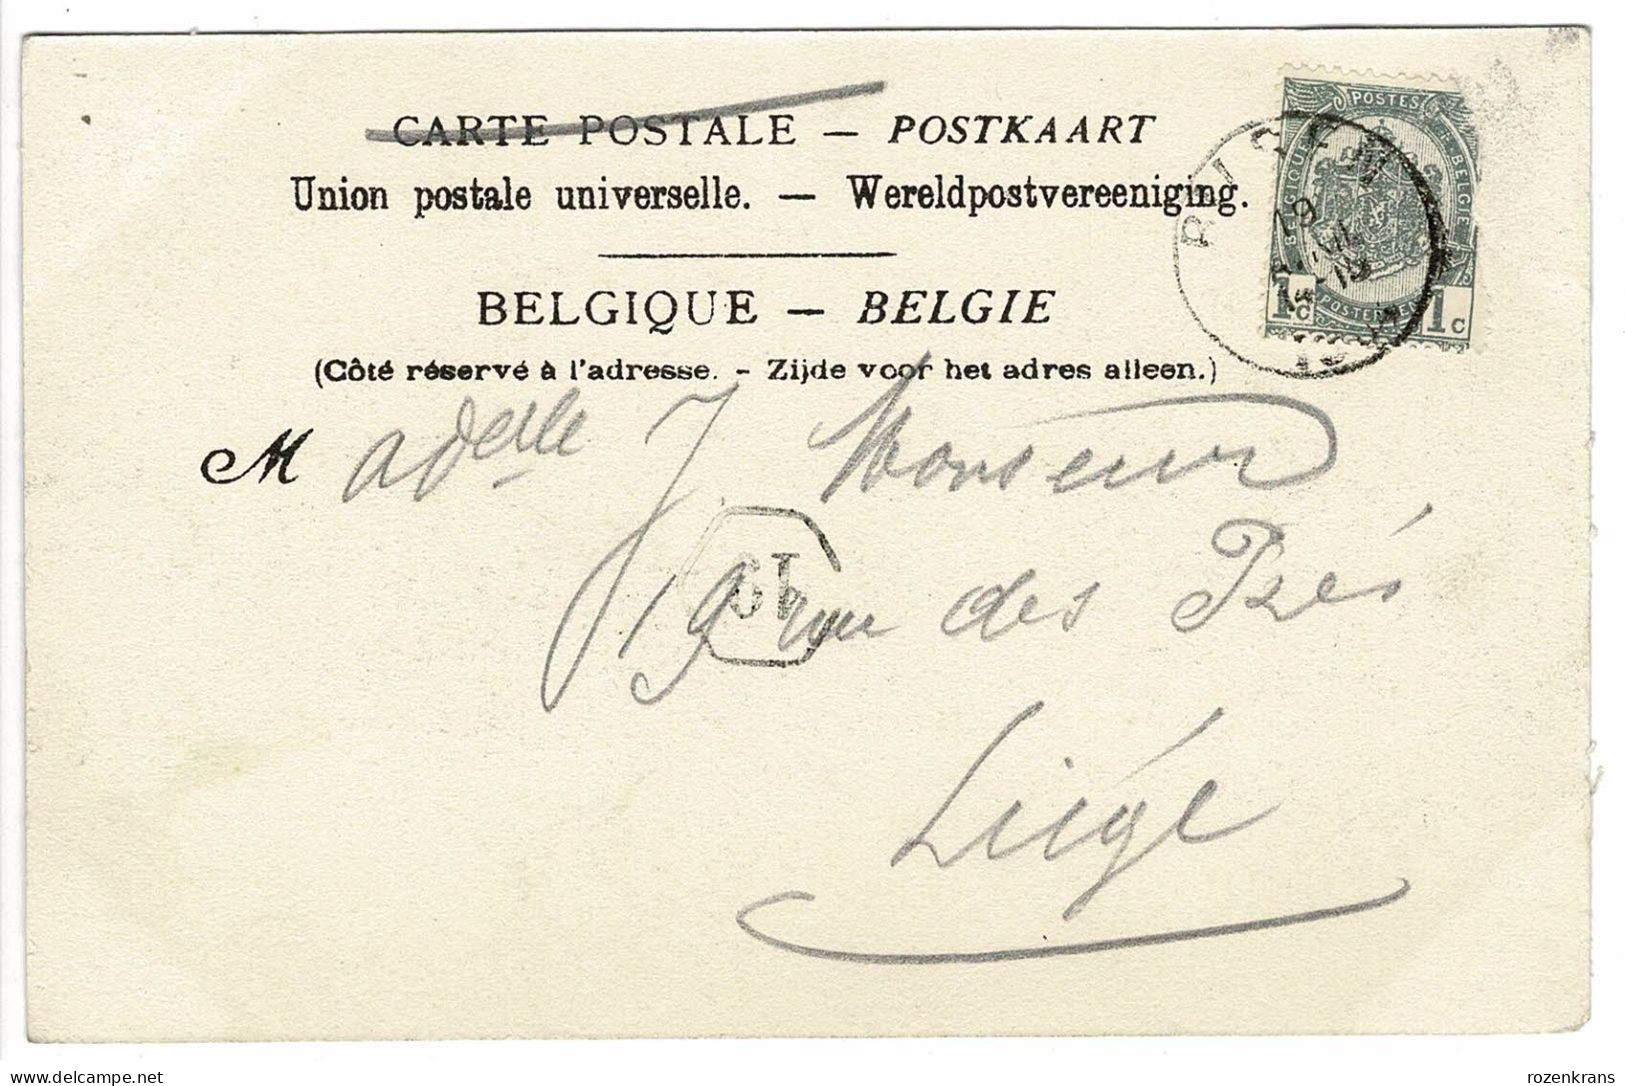 CARTE POSTALE — POSTKAART
Union postale universelle. — Wereldpostvereeniging.
BELGIQUE — BELGIE
(Côté réservé à l'adresse. - Zijde voor het adres alleen.)
POSTES
BELGIQUE
BELGIE
1c
POSTERIJEN
1c
19
Madelle J. Monseur
19 rue des Prés
Liége
rozenkrans